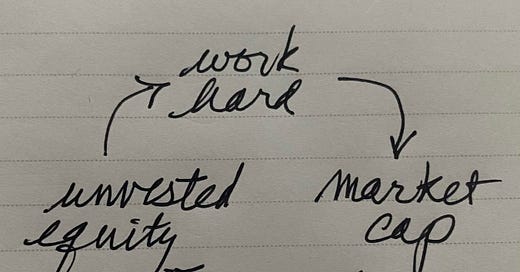 work
hard
unvested
equity
market
cap